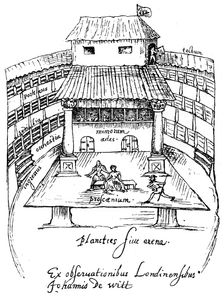 tectum
porticus
sedilia
orchestra
ingressus
mimorum
ædes
proscænium
planities siue arena.
Ex obseruationibus Londinensibus
Johannis de witt